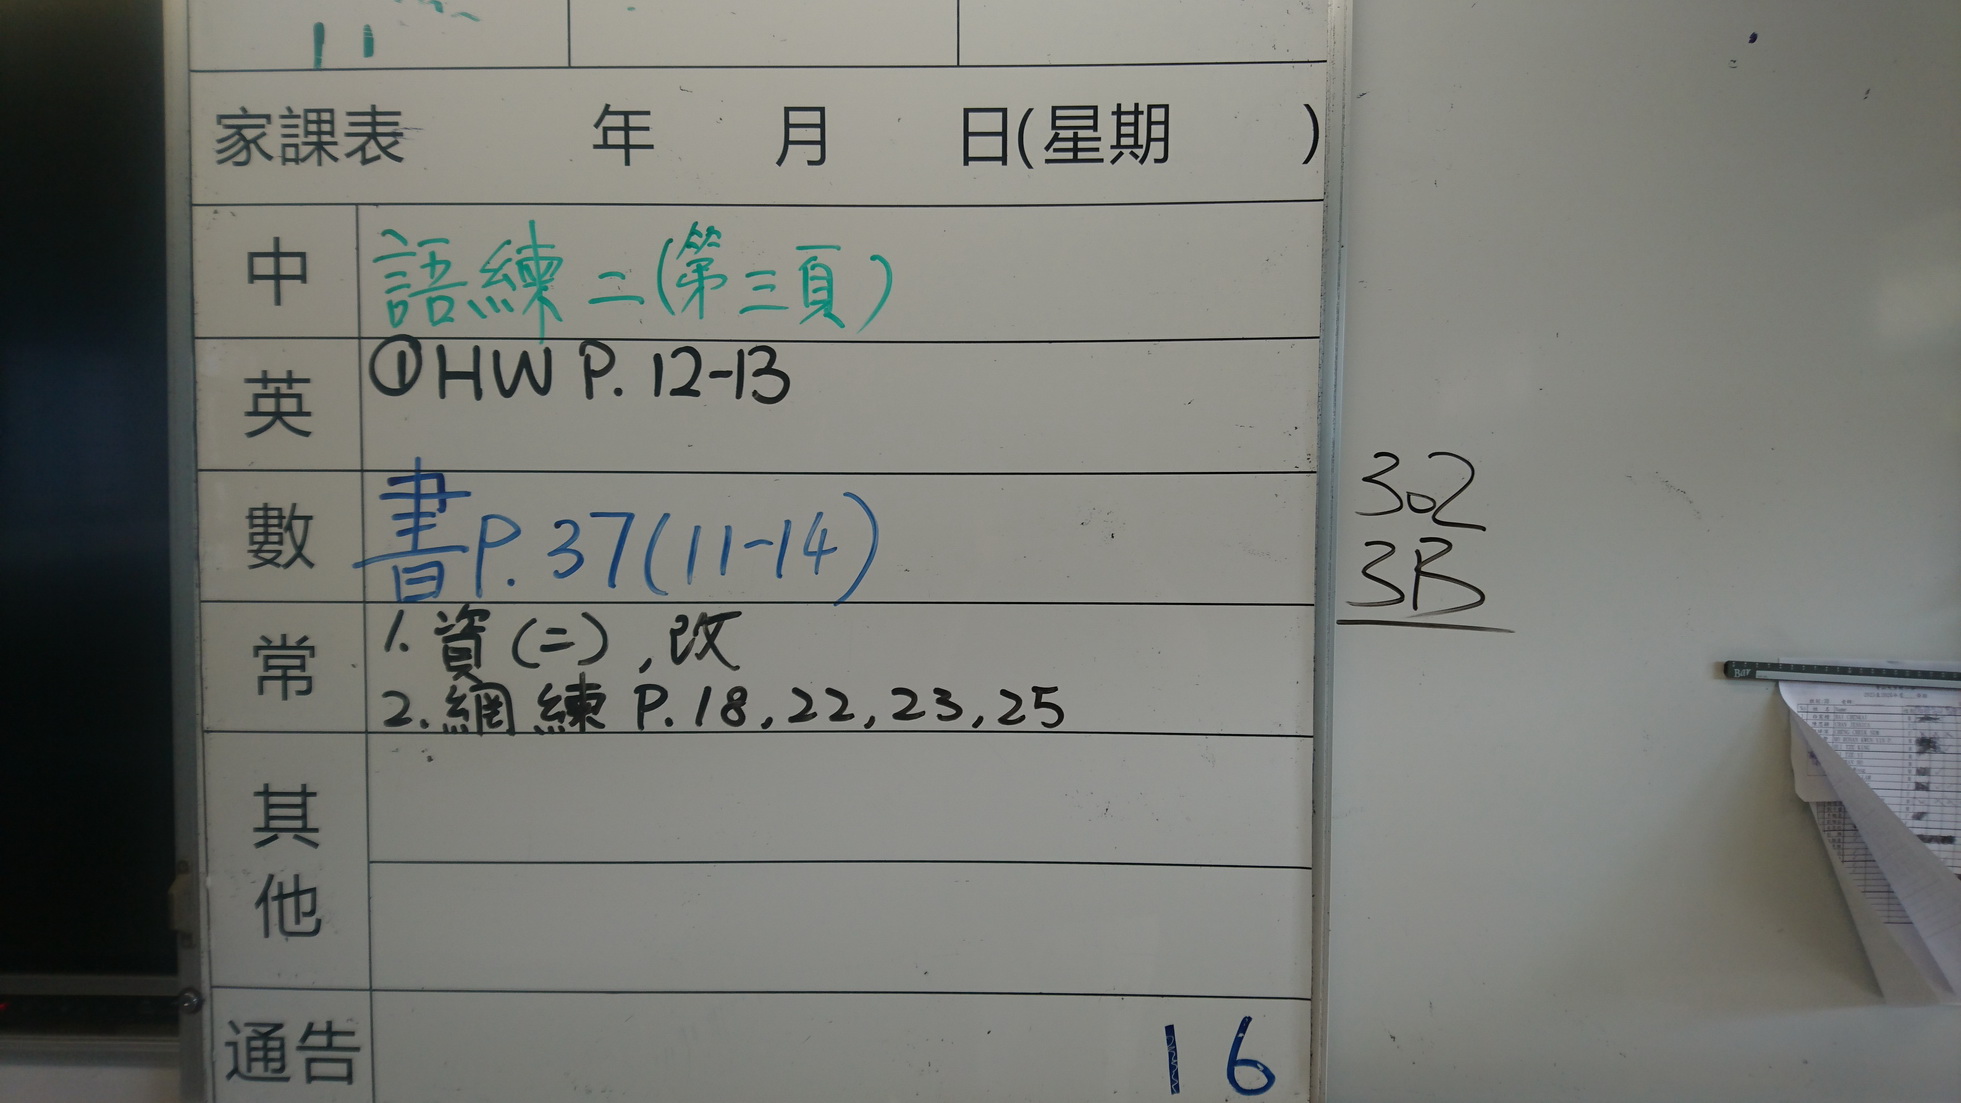 11
家課表 年 月 日(星期 )
中 語練二(第三頁)
英 ①HW P. 12-13
數 書P. 37(11-14)
常 1. 資(二), 改
2. 網練 P. 18, 22, 23, 25
其他
通告 16
302
3B